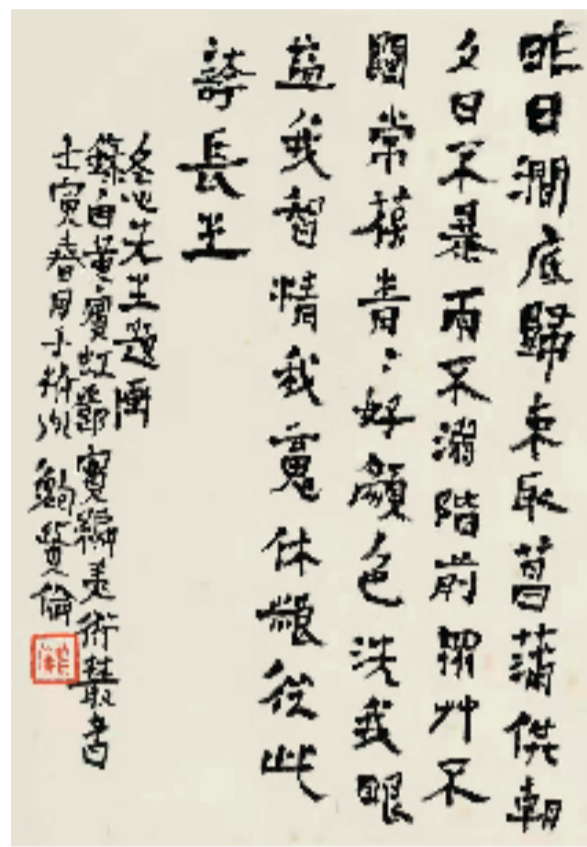 昨日澗底歸來取菖蒲供朝
夕日不暴雨不溺階前艸不
關常葆青:好顏色洗我眼
益我智精我魂休糧從此
誇長生
冬心先生題画
錄自黃賓虹鄧實編美術叢書
壬寅春月于